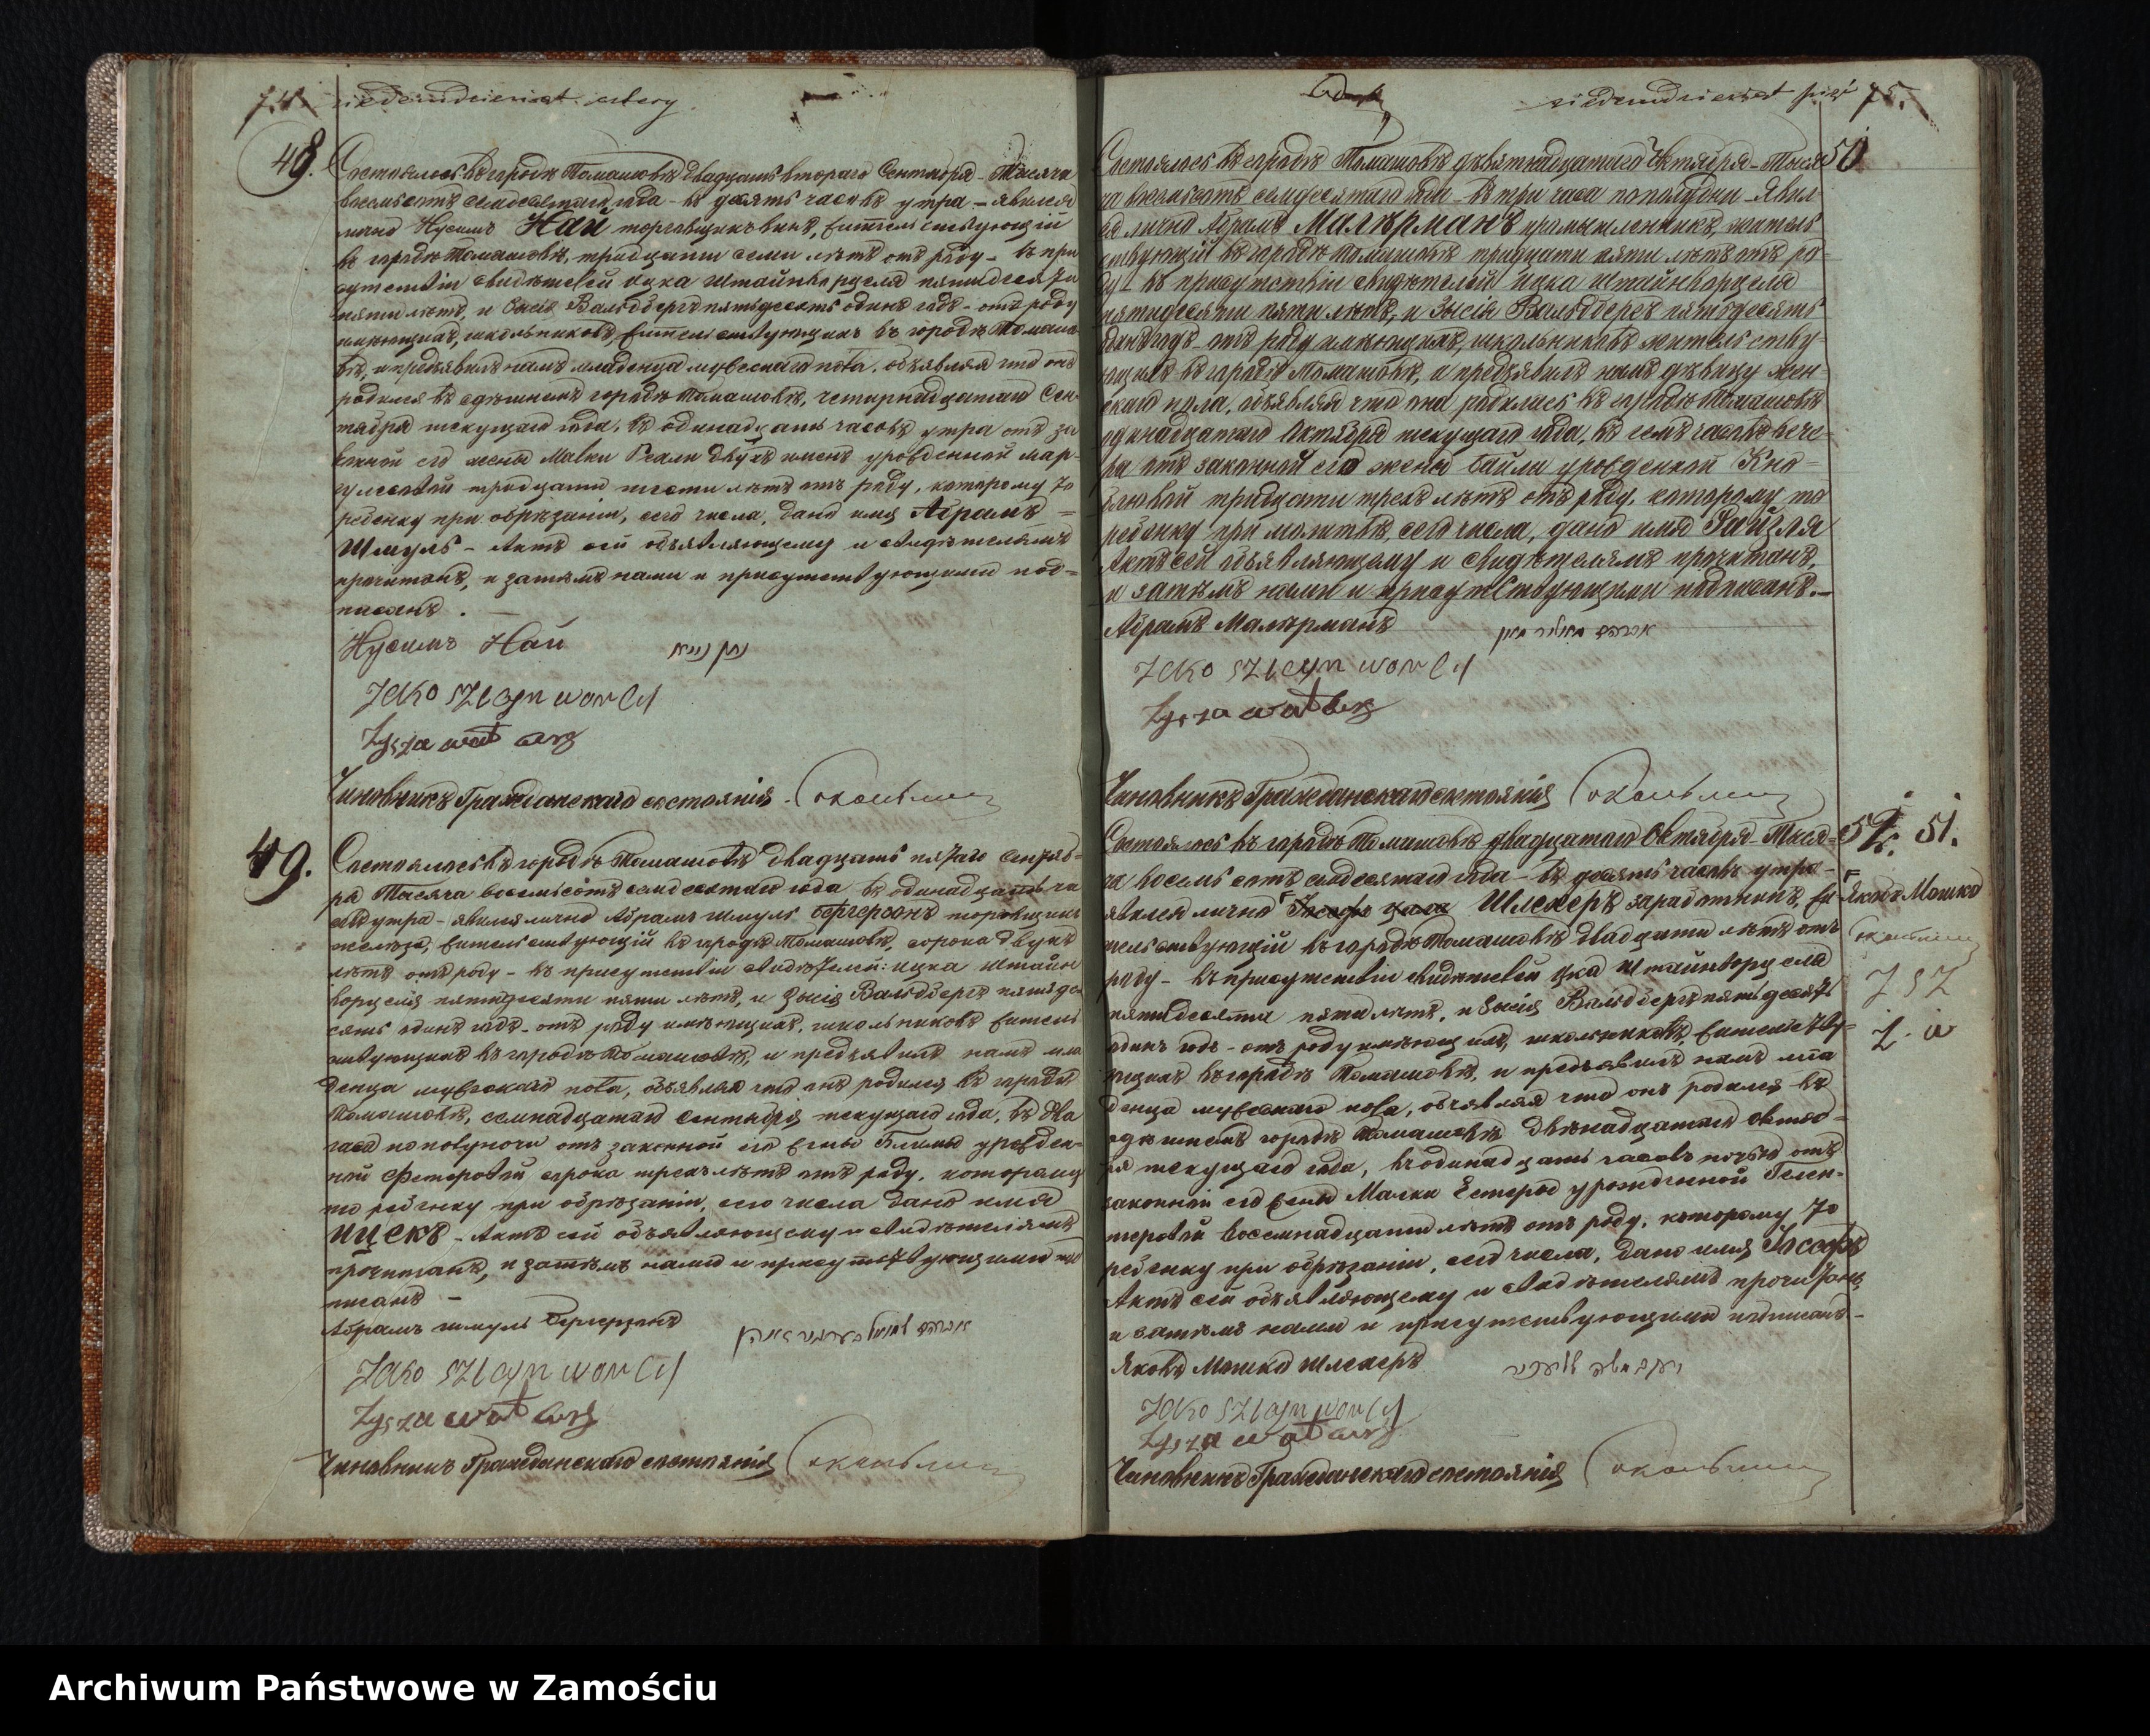 74. siedemdziesiąt cztery.
48.
Состоялось въ городѣ Томашовѣ двадцать втораго Сентября Тысяча
восемьсотъ семдесятаго года – въ десять часовъ утра – явился
лично Нусимъ Най торговщикъ винъ, жительствующій
въ городѣ Томашовѣ, тридцати семи лѣтъ отъ роду – въ при
сутствіи свидѣтелей Ицка Штайнворцеля пятидесяти
пяти лѣтъ, и Зысія Вальдберга пятьдесятъ одинъ годъ – отъ роду
имѣющихъ, школьниковъ, жительствующихъ въ городѣ Томашо
вѣ, и предъявилъ намъ младенца мужескаго пола, объявляя что онъ
родился въ здѣшнемъ городѣ Томашовѣ, четырнадцатаго Сен
тября текущаго года, въ одинадцать часовъ утра отъ за
конной его жены Малки Реали двухъ именъ урожденной Мар
гулесовой тридцати шести лѣтъ отъ роду, которому то
ребенку при обрѣзаніи, сего числа, дано имя Абрамъ =
Шмуль – Актъ сей объявляющему и свидѣтелямъ
прочитанъ, и затѣмъ нами и присутствующими под=
писанъ. –
Нусимъ Най נתן נייא
Icko Sztaynworcel
Zysza Waldberg
Чиновникъ Гражданскаго состоянія
49.
Состоялось въ городѣ Томашовѣ двадцать пятаго Сентяб=
ря Тысяча восемьсотъ семдесятаго года въ одинадцать ча
совъ утра – явился лично Абрамъ Шмуль Бергерзонъ торговщикъ
желѣза, жительствующій въ городѣ Томашовѣ, сорока двухъ
лѣтъ отъ роду – въ присутствіи свидѣтелей: Ицка Штайн
ворцеля пятидесяти пяти лѣтъ, и Зысія Вальдберга пятьде
сятъ одинъ годъ – отъ роду имѣющихъ, школьниковъ житель
ствующихъ въ городѣ Томашовѣ, и предъявилъ намъ мла
денца мужескаго пола, объявляя что онъ родился въ городѣ
Томашовѣ, семнадцатаго Сентября текущаго года, въ два
часа пополуночи отъ законной его жены Блимы урожден=
ной Федеровой сорока трехъ лѣтъ отъ роду, которому
то ребенку при обрѣзаніи, сего числа дано имя
Ицекъ – Актъ сей объявляющему и свидѣтелямъ
прочитанъ, и затѣмъ нами и присутствующими под
писанъ –
Абрамъ Шмуль Бергерзонъ
Icko Sztaynworcel
Zysza Waldberg
Чиновникъ Гражданскаго состоянія
siedemdziesiąt pięć 75.
50
Состоялось въ городѣ Томашовѣ девятнадцатаго Октября – Тыся
ча восемьсотъ семдесятаго года – въ три часа пополудни – Явил
ся лично Абрамъ Малѣрманъ промышленникъ, житель
ствующій въ городѣ Томашовѣ тридцати пяти лѣтъ отъ ро-
ду – въ присутствіи свидѣтелей Ицка Штайнворцеля
пятидесяти пяти лѣтъ, и Зысія Вальдберга пятьдесятъ
одинъ годъ – отъ роду имѣющихъ, школьниковъ жительству-
ющихъ въ городѣ Томашовѣ, и предъявилъ намъ дѣвицу жен-
скаго пола, объявляя что она родилась въ городѣ Томашовѣ
одинадцатаго Октября текущаго года, въ семь часовъ вече-
ра отъ законной его жены Байли урожденной Кно-
блювой тридцати трехъ лѣтъ отъ роду, которому то
ребенку при молитвѣ, сего числа, дано имя Файгля
Актъ сей объявляющему и свидѣтелямъ прочитанъ,
и затѣмъ нами и присутствующими подписанъ. –
Абрамъ Малѣрманъ אברהם מאליר מאן
Icko Sztaynworcel
Zysza Waldberg
Чиновникъ Гражданскаго состоянія
51.
Состоялось въ городѣ Томашовѣ двадцатаго Октября – Тыся-
ча восемьсотъ семдесятаго года – въ десять часовъ утра –
явился лично Шлекеръ заработникъ, жи-
тельствующій въ городѣ Томашовѣ двадцати лѣтъ отъ
роду – въ присутствіи свидѣтелей Ицка Штайнворцеля
пятидесяти пяти лѣтъ, и Зысія Вальдберга пятьдесятъ
одинъ годъ – отъ роду имѣющихъ, школьниковъ, жительству=
ющихъ въ городѣ Томашовѣ, и предъявилъ намъ мла
денца мужескаго пола, объявляя что онъ родился въ
здѣшнемъ городѣ Томашовѣ двѣнадцатаго Октяб-
ря текущаго года, въ одинадцать часовъ ночью отъ
законной его жены Малки Естеры урожденной Гелен-
теровой восемнадцати лѣтъ отъ роду, которому то
ребенку при обрѣзаніи, сего числа, дано имя Іосефъ
Актъ сей объявляющему и свидѣтелямъ прочитанъ,
и затѣмъ нами и присутствующими подписанъ –
Яковъ Мошко Шлекеръ
Icko Sztaynworcel
Zysza Waldberg
Чиновникъ Гражданскаго состоянія
Яковъ Мошко
I S Z
Z. W
Archiwum Państwowe w Zamościu